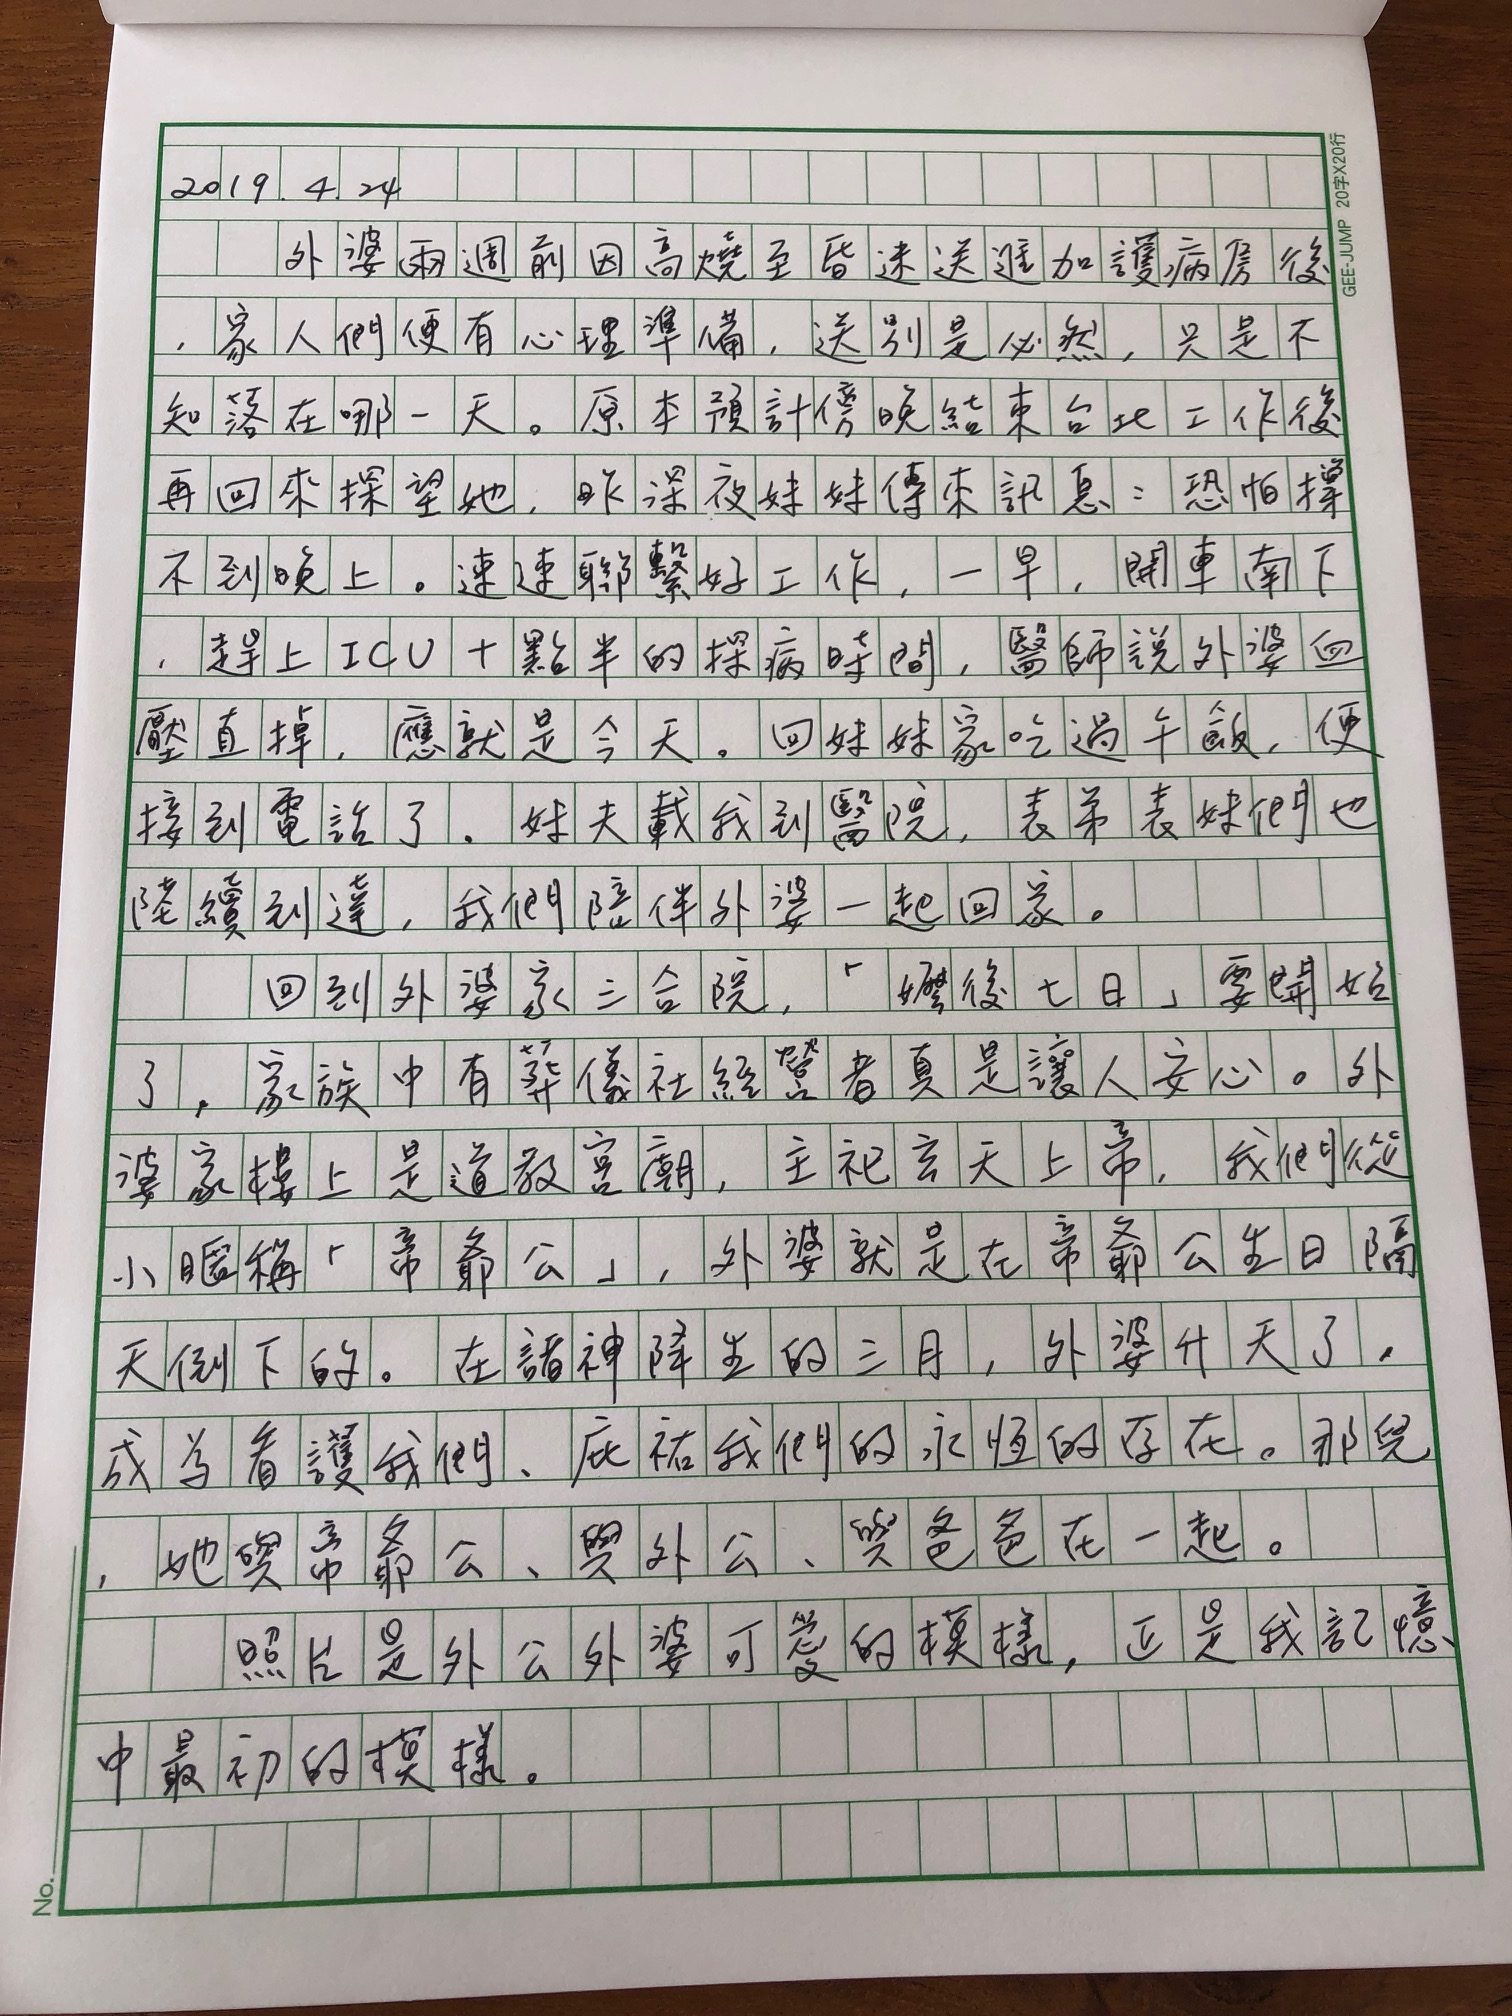 2019.4.24
外婆兩週前因高燒至昏迷送進加護病房後
，家人們便有心理準備，送別是必然，只是不
知落在哪一天。原本預計傍晚結束台北工作後
再回來探望她，昨深夜妹妹傳來訊息：恐怕撐
不到晚上。速速聯繫好工作，一早，開車南下
，趕上ICU十點半的探病時間，醫師說外婆血
壓直掉，應就是今天。回妹妹家吃過午飯，便
接到電話了。妹夫載我到醫院，表弟表妹們也
陸續到達，我們陪伴外婆一起回家。
回到外婆家三合院，「嬤後七日」要開始
了，家族中有葬儀社經營者真是讓人安心。外
婆家樓上是道教宮廟，主祀玄天上帝，我們從
小暱稱「帝爺公」，外婆就是在帝爺公生日隔
天倒下的。在諸神降生的三月，外婆升天了，
成為看護我們、庇祐我們的永恆的存在。那兒
，她與帝爺公、與外公、與爸爸在一起。
照片是外公外婆可愛的模樣，正是我記憶
中最初的模樣。
GEE-JUMP 20字X20行
No.